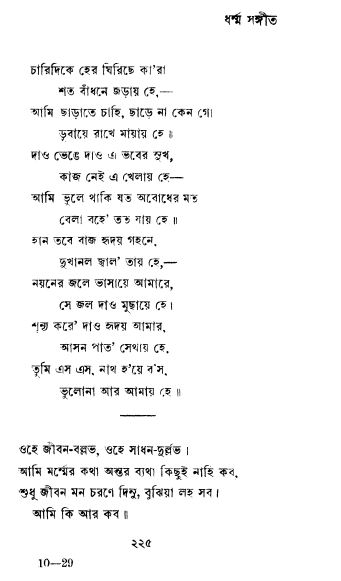 ধর্ম্ম সঙ্গীত
চারিদিকে হের ঘিরিছে কা'রা
শত বাঁধনে জড়ায় হে,—
আমি ছাড়াতে চাহি, ছাড়ে না কেন গো
ডুবায়ে রাখে মায়ায় হে॥
দাও ভেঙে দাও এ ভবের সুখ,
কাজ নেই এ খেলায় হে—
আমি ভুলে থাকি যত অবোধের মত
বেলা বহে' তত যায় হে॥
হান তবে বাজ হৃদয় গহনে,
দুখানল জ্বাল' তায় হে,—
নয়নের জলে ভাসায়ে আমারে,
সে জল দাও মুছায়ে হে।
শূন্য করে' দাও হৃদয় আমার,
আসন পাত' সেথায় হে,
তুমি এস এস, নাথ হ'য়ে ব'স,
ভুলোনা আর আমায় হে॥
ওহে জীবন-বল্লভ, ওহে সাধন-দুর্ল্লভ।
আমি মর্ম্মের কথা অন্তর ব্যথা কিছুই নাহি কব,
শুধু জীবন মন চরণে দিনু, বুঝিয়া লহ সব।
আমি কি আর কব॥
২২৫
10—29